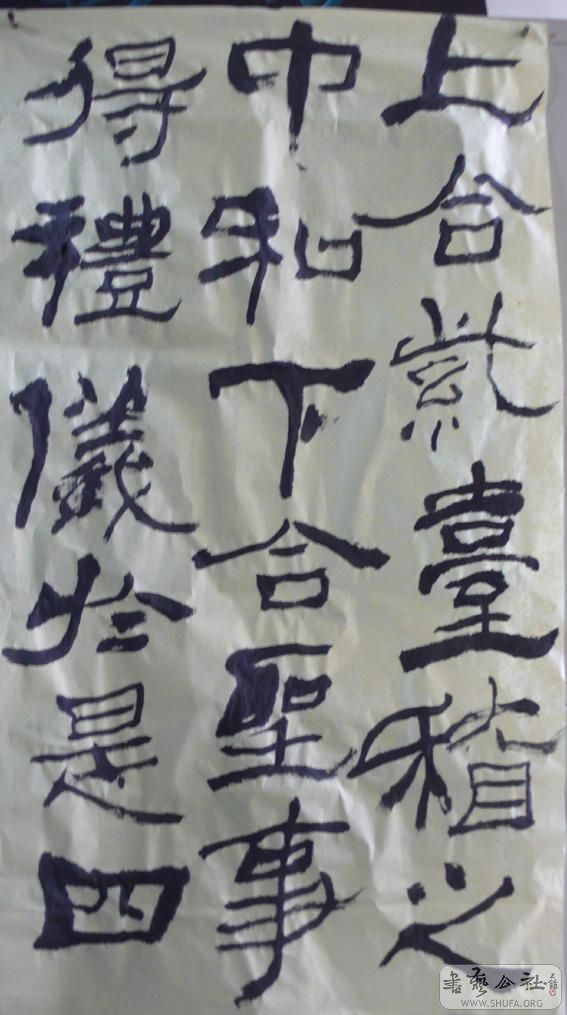 上合紫臺稽之
中和下合聖事
得禮儀於是四
書藝公社
WWW.SHUFA.ORG